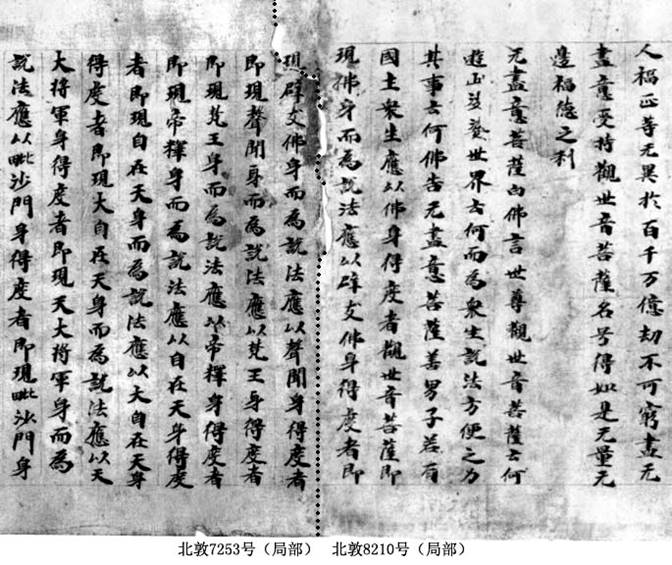 人福正等无異扵百千万億劫不可窮盡无
盡意受持觀世音菩薩名号得如是无量无
邊福德之利
无盡意菩薩白佛言世尊觀世音菩薩云何
遊此娑婆世界云何而為衆生說法方便之力
其事云何佛告无盡意菩薩善男子若有
國土衆生應以佛身得度者觀世音菩薩即
現佛身而為說法應以辟支佛身得度者即
現辟支佛身而為說法應以聲聞身得度者
即現聲聞身而為說法應以梵王身得度者
即現梵王身而為說法應以帝釋身得度者
即現帝釋身而為說法應以自在天身得度
者即現自在天身而為說法應以大自在天身
得度者即現大自在天身而為說法應以天
大將軍身得度者即現天大將軍身而為
說法應以毗沙門身得度者即現毗沙門身
北敦7253号（局部） 北敦8210号（局部）